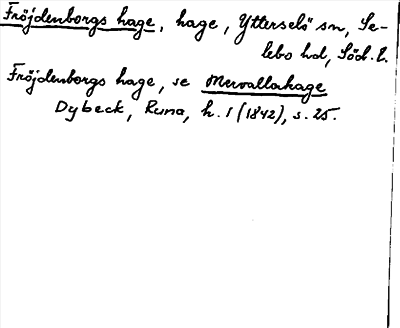 Fröjdenborgs hage, hage, Ytterselö sn, Se-
lebo hd, Söd. l.
Fröjdenborgs hage, se Mervallahage
Dybeck, Runa, h. 1 (1842), s. 25.